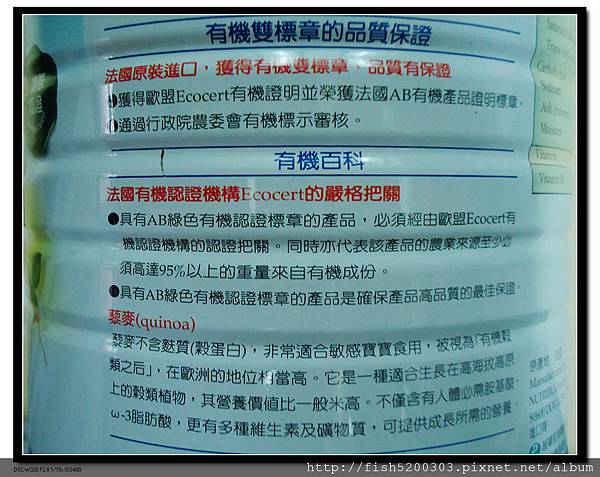 有機雙標章的品質保證
法國原裝進口，獲得有機雙標章，品質有保證
●獲得歐盟Ecocert有機證明並榮獲法國AB有機產品證明標章。
●通過行政院農委會有機標示審核。
有機百科
法國有機認證機構Ecocert的嚴格把關
●具有AB綠色有機認證標章的產品，必須經由歐盟Ecocert有
機認證機構的認證把關。同時亦代表該產品的農業來源至少必
須高達95%以上的重量來自有機成份。
●具有AB綠色有機認證標章的產品是確保產品高品質的最佳保證。
藜麥(quinoa)
藜麥不含麩質(穀蛋白)，非常適合敏感寶寶食用，被視為「有機穀
類之后」，在歐洲的地位相當高。它是一種適合生長在高海拔高原
上的穀類植物，其營養價值比一般米高。不僅含有人體必需胺基酸、
ω-3脂肪酸，更有多種維生素及礦物質，可提供成長所需的營養。
Sodium
Ash
Moisture
Vitamins
Vitamin
原產地
NUTRI
80600
進口商
DSC-W320 F2.8 1/15s ISO400
http://fish5200303.pixnet.net/album